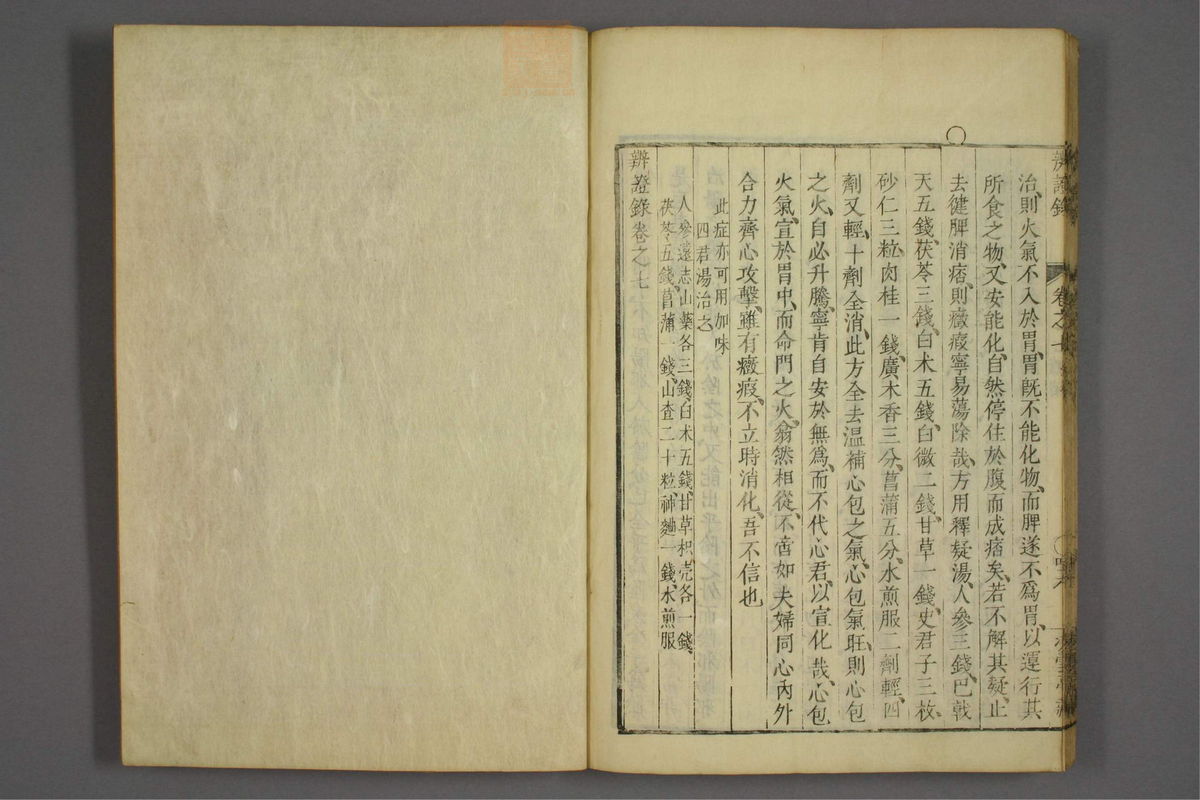 辨證錄 卷之七
治則火氣不入於胃、胃旣不能化物、而脾遂不爲胃以運行其
所食之物、又安能化、自然停住於腹而成痞矣、若不解其疑、止
去健脾消痞、則癥瘕寧易蕩除哉、方用釋疑湯、人參三錢、巴戟
天五錢、茯苓三錢、白术五錢、白微二錢、甘草一錢、史君子三枚、
砂仁三粒、肉桂一錢、廣木香三分、菖蒲五分、水煎服二劑輕、四
劑又輕、十劑全消、此方全去温補心包之氣、心包氣旺、則心包
之火、自必升騰、寧肯自安於無爲、而不代心君以宣化哉、心包
火氣、宣於胃中、而命門之火、翁然相從、不啻如夫婦同心內外
合力齊心攻擊、雖有癥瘕、不立時消化、吾不信也
此症亦可用加味
四君湯治之
人參遠志山藥各三錢、白术五錢、甘草枳壳各一錢、
茯苓五錢、菖蒲一錢、山查二十粒、神麯一錢、水煎服
辨證錄卷之七